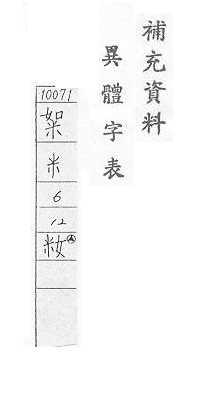 補充資料
異體字表
10071
米
6
12
籹